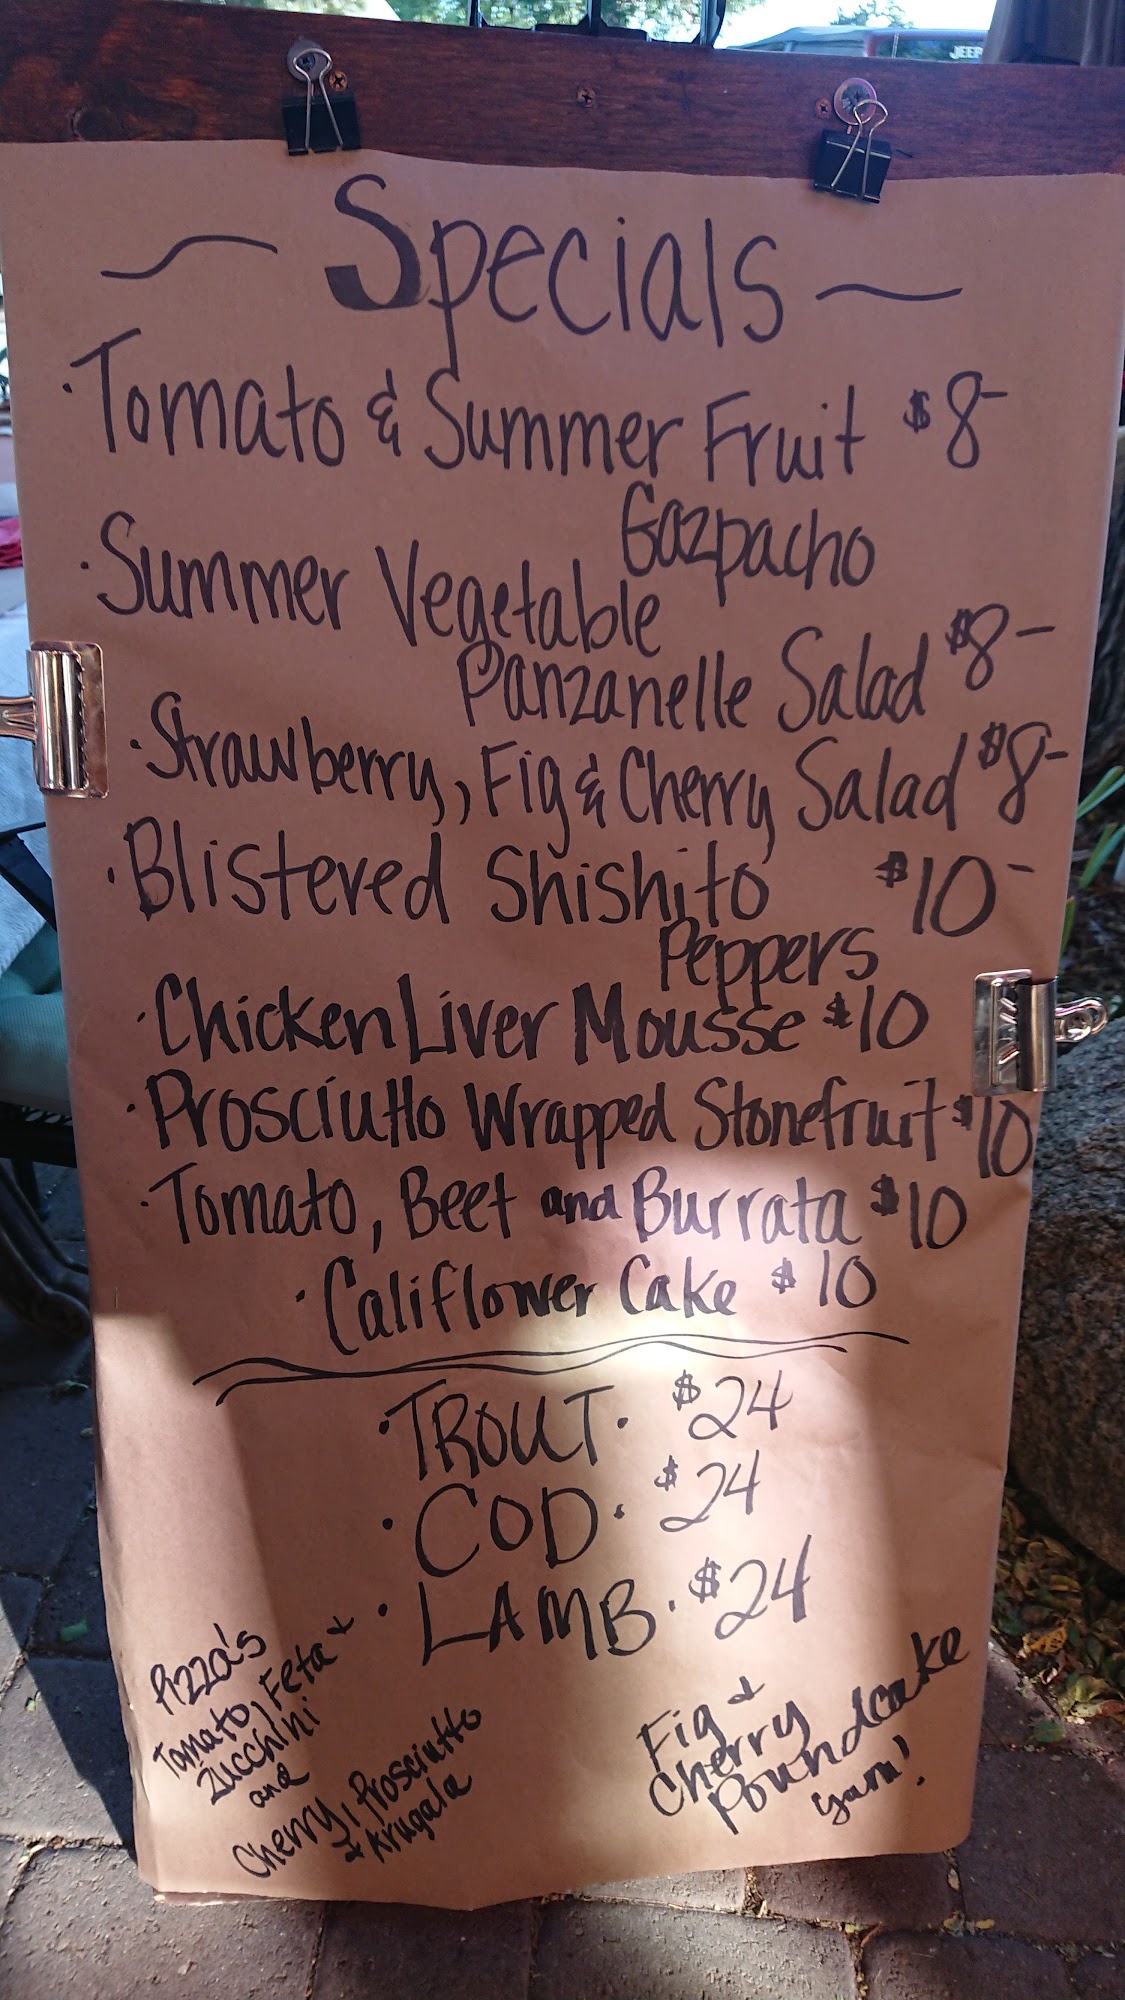 JEEP
~ Specials ~
· Tomato & Summer Fruit $8-
Gazpacho
· Summer Vegetable
Panzanelle Salad $8-
· Strawberry, Fig & Cherry Salad $8-
· Blistered Shishito $10-
Peppers
· Chicken Liver Mousse $10
· Prosciutto Wrapped Stonefruit $10
· Tomato, Beet and Burrata $10
· Califlower Cake $10
· TROUT · $24
· COD · $24
· LAMB · $24
Pizza's
Tomato, Feta +
Zucchini
and
Cherry, Prosciutto
+ Arugala
Fig +
Cherry
Poundcake
yum!